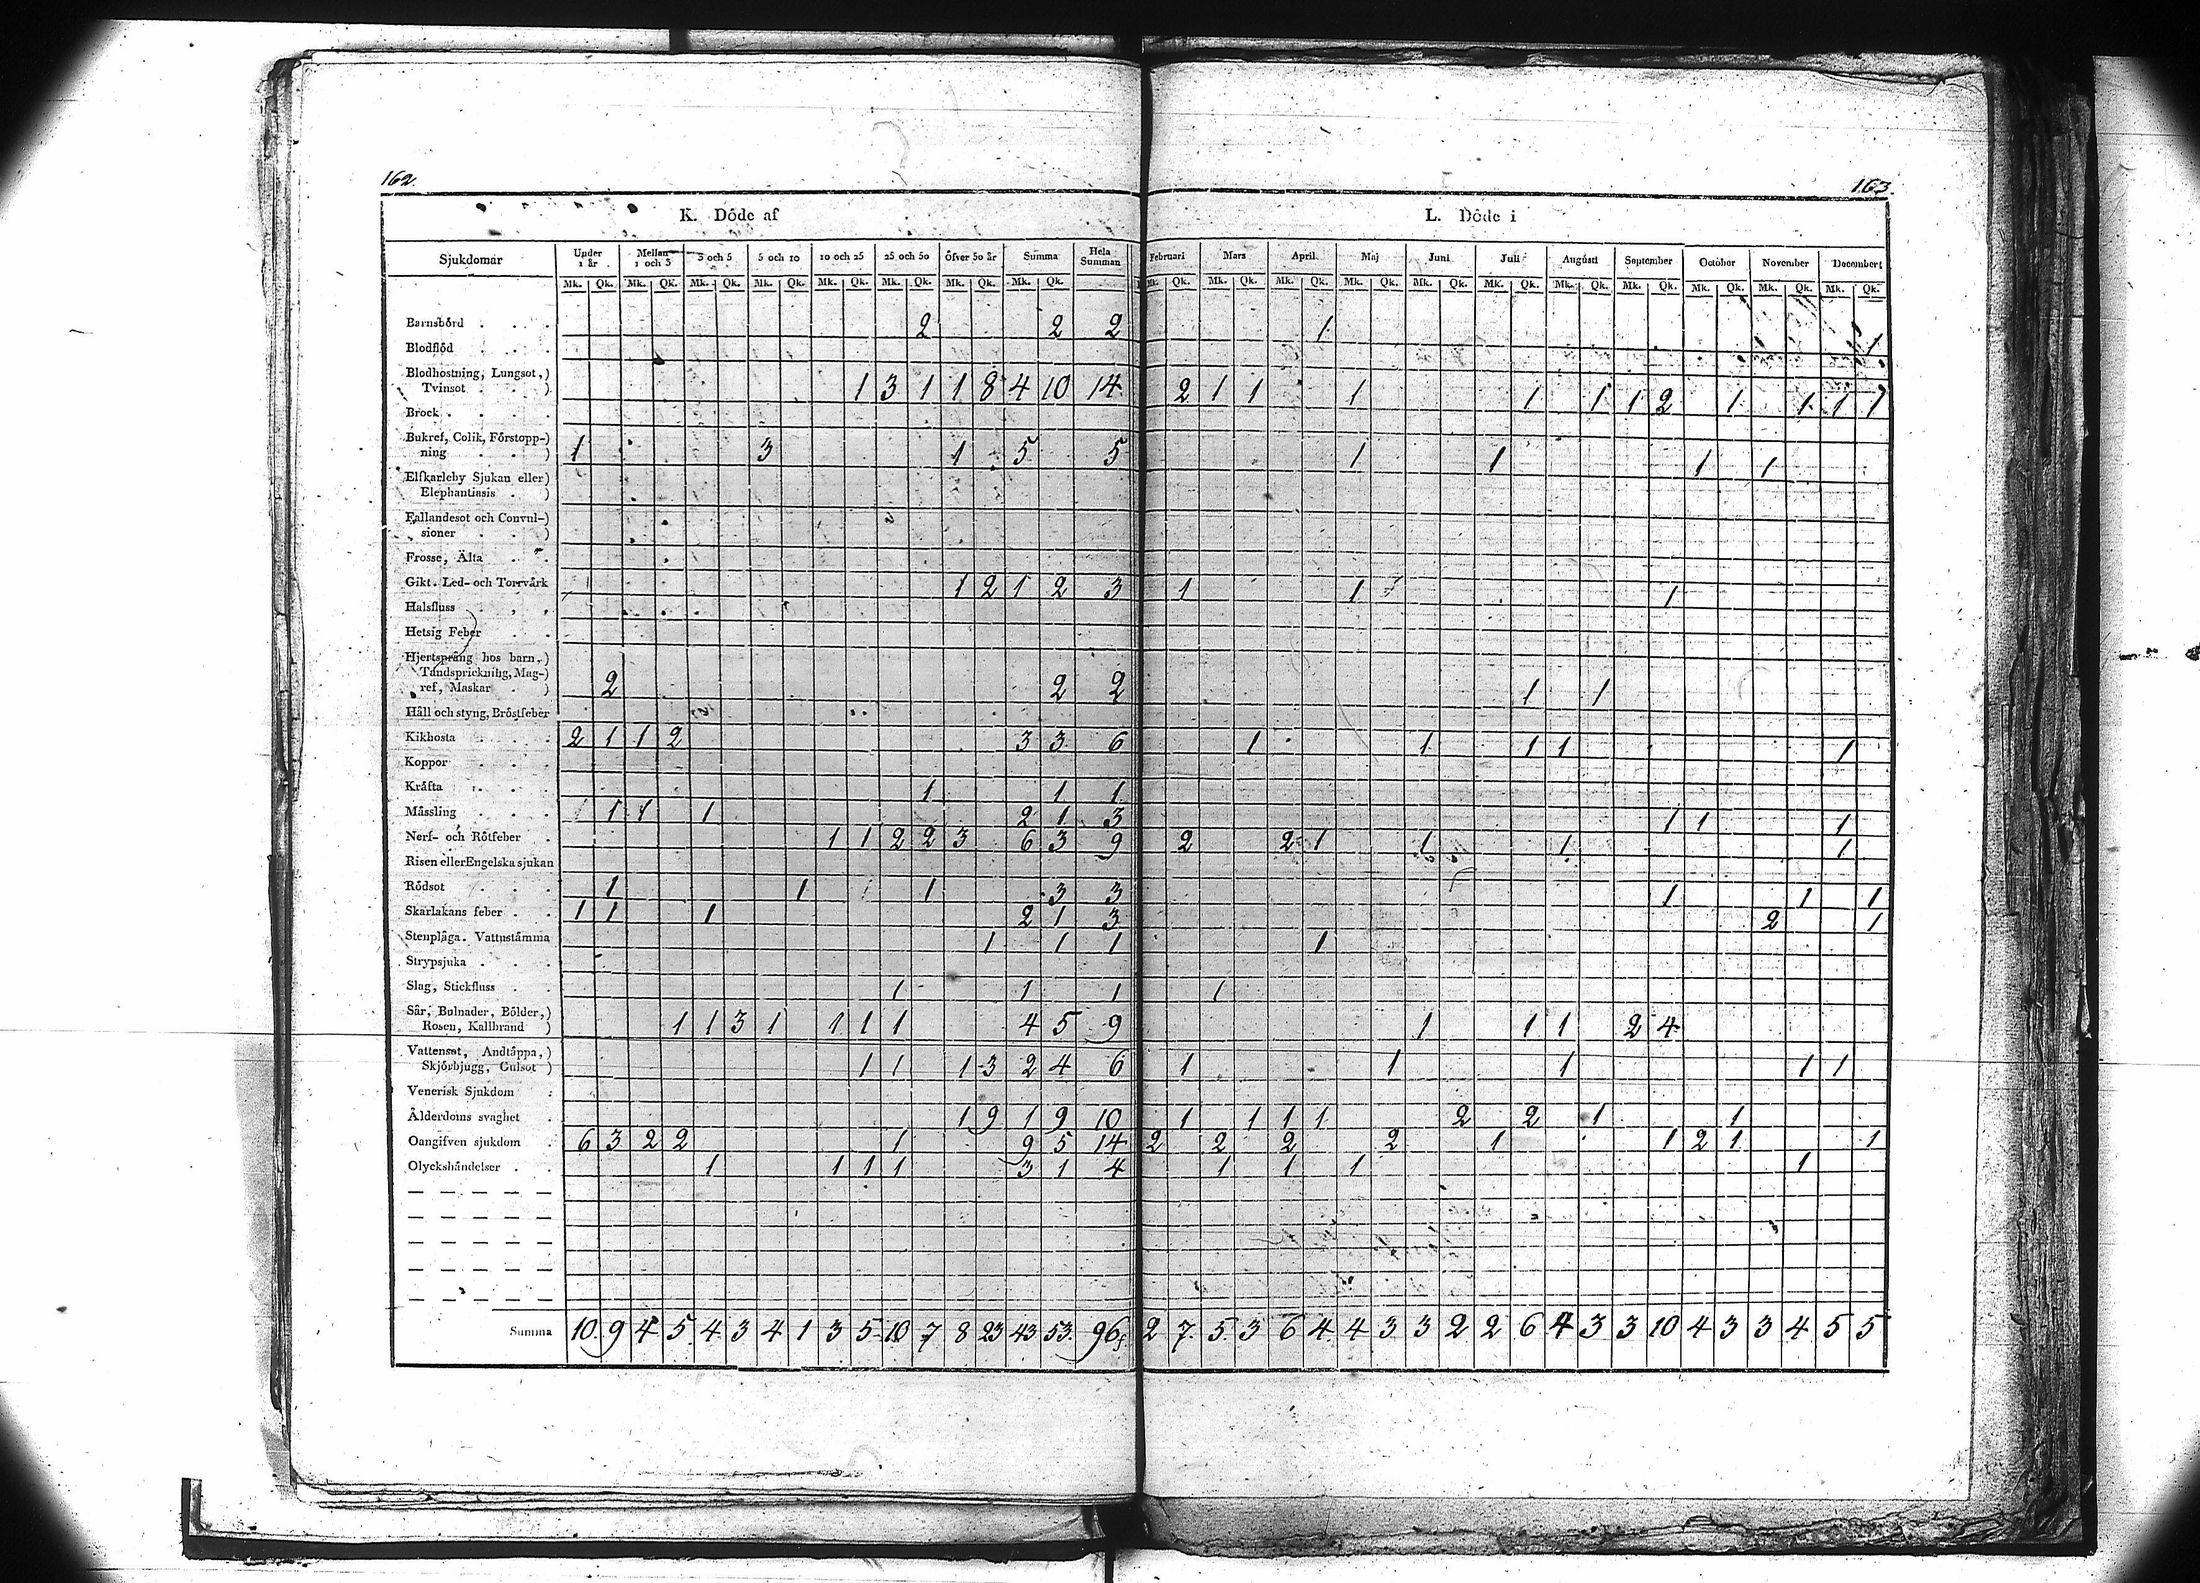 162. 163.
K. Döde af L. Döde i
Sjukdomar Under 1 år Mellan 1 och 3 3 och 5 5 och 10 10 och 25 25 och 50 Öfver 50 år Summa Hela Summan Februari Mars April Maj Juni Juli Augusti September October November December
Mk. Qk. Mk. Qk. Mk. Qk. Mk. Qk. Mk. Qk. Mk. Qk. Mk. Qk. Mk. Qk. Mk. Qk. Mk. Qk. Mk. Qk. Mk. Qk. Mk. Qk. Mk. Qk. Mk. Qk. Mk. Qk. Mk. Qk. Mk. Qk. Mk. Qk.
Barnsbörd . . . 2 2 2 1 1
Blodflöd . . .
Blodhostning, Lungsot,)
Tvinsot . . ) 1 3 1 1 8 4 10 14 2 1 1 1 1 1 1 2 1 1 1 1
Brock . . . .
Bukref, Colik, Förstopp-)
ning . . . ) 1 3 1 5 5 1 1 1 1
Elfkarleby Sjukan eller)
Elephantiasis . )
Fallandesot och Convul-)
sioner . . . )
Frosse, Älta . .
Gikt. Led- och Torrvärk 1 2 1 2 3 1 1 1
Halsfluss . . .
Hetsig Feber . .
Hjertsprång hos barn,)
Tandsprickning, Mag-)
ref, Maskar . ) 2 2 2 1 1
Håll och styng, Bröstfeber
Kikhosta . . . 2 1 1 2 3 3 6 1 1 1 1 1
Koppor . . .
Kräfta . . . 1 1 1
Mässling . . . 1 1 1 2 1 3 1 1 1
Nerf- och Rötfeber . 1 1 2 2 3 6 3 9 2 2 1 1 1 1
Risen eller Engelska sjukan
Rödsot . . . 1 1 1 3 3 1 1 1
Skarlakans feber . . 1 1 1 2 1 3 2 1
Stenplåga. Vattustämma 1 1 1 1
Strypsjuka . . .
Slag, Stickfluss . . 1 1 1 1
Sår, Bulnader, Bölder,)
Rosen, Kallbrand ) 1 1 3 1 1 1 1 4 5 9 1 1 1 2 4
Vattensot, Andtäppa,)
Skjörbjugg, Gulsot ) 1 1 1 3 2 4 6 1 1 1 1 1
Venerisk Sjukdom .
Ålderdoms svaghet . 1 9 1 9 10 1 1 1 1 2 2 1 1
Oangifven sjukdom . 6 3 2 2 1 9 5 14 2 2 2 2 1 1 2 1 1
Olyckshändelser . . 1 1 1 1 3 1 4 1 1 1 1
Summa 10 9 4 5 4 3 4 1 3 5 10 7 8 23 43 53 96 2 7 5 3 6 4 4 3 3 2 2 6 4 3 3 10 4 3 3 4 5 5